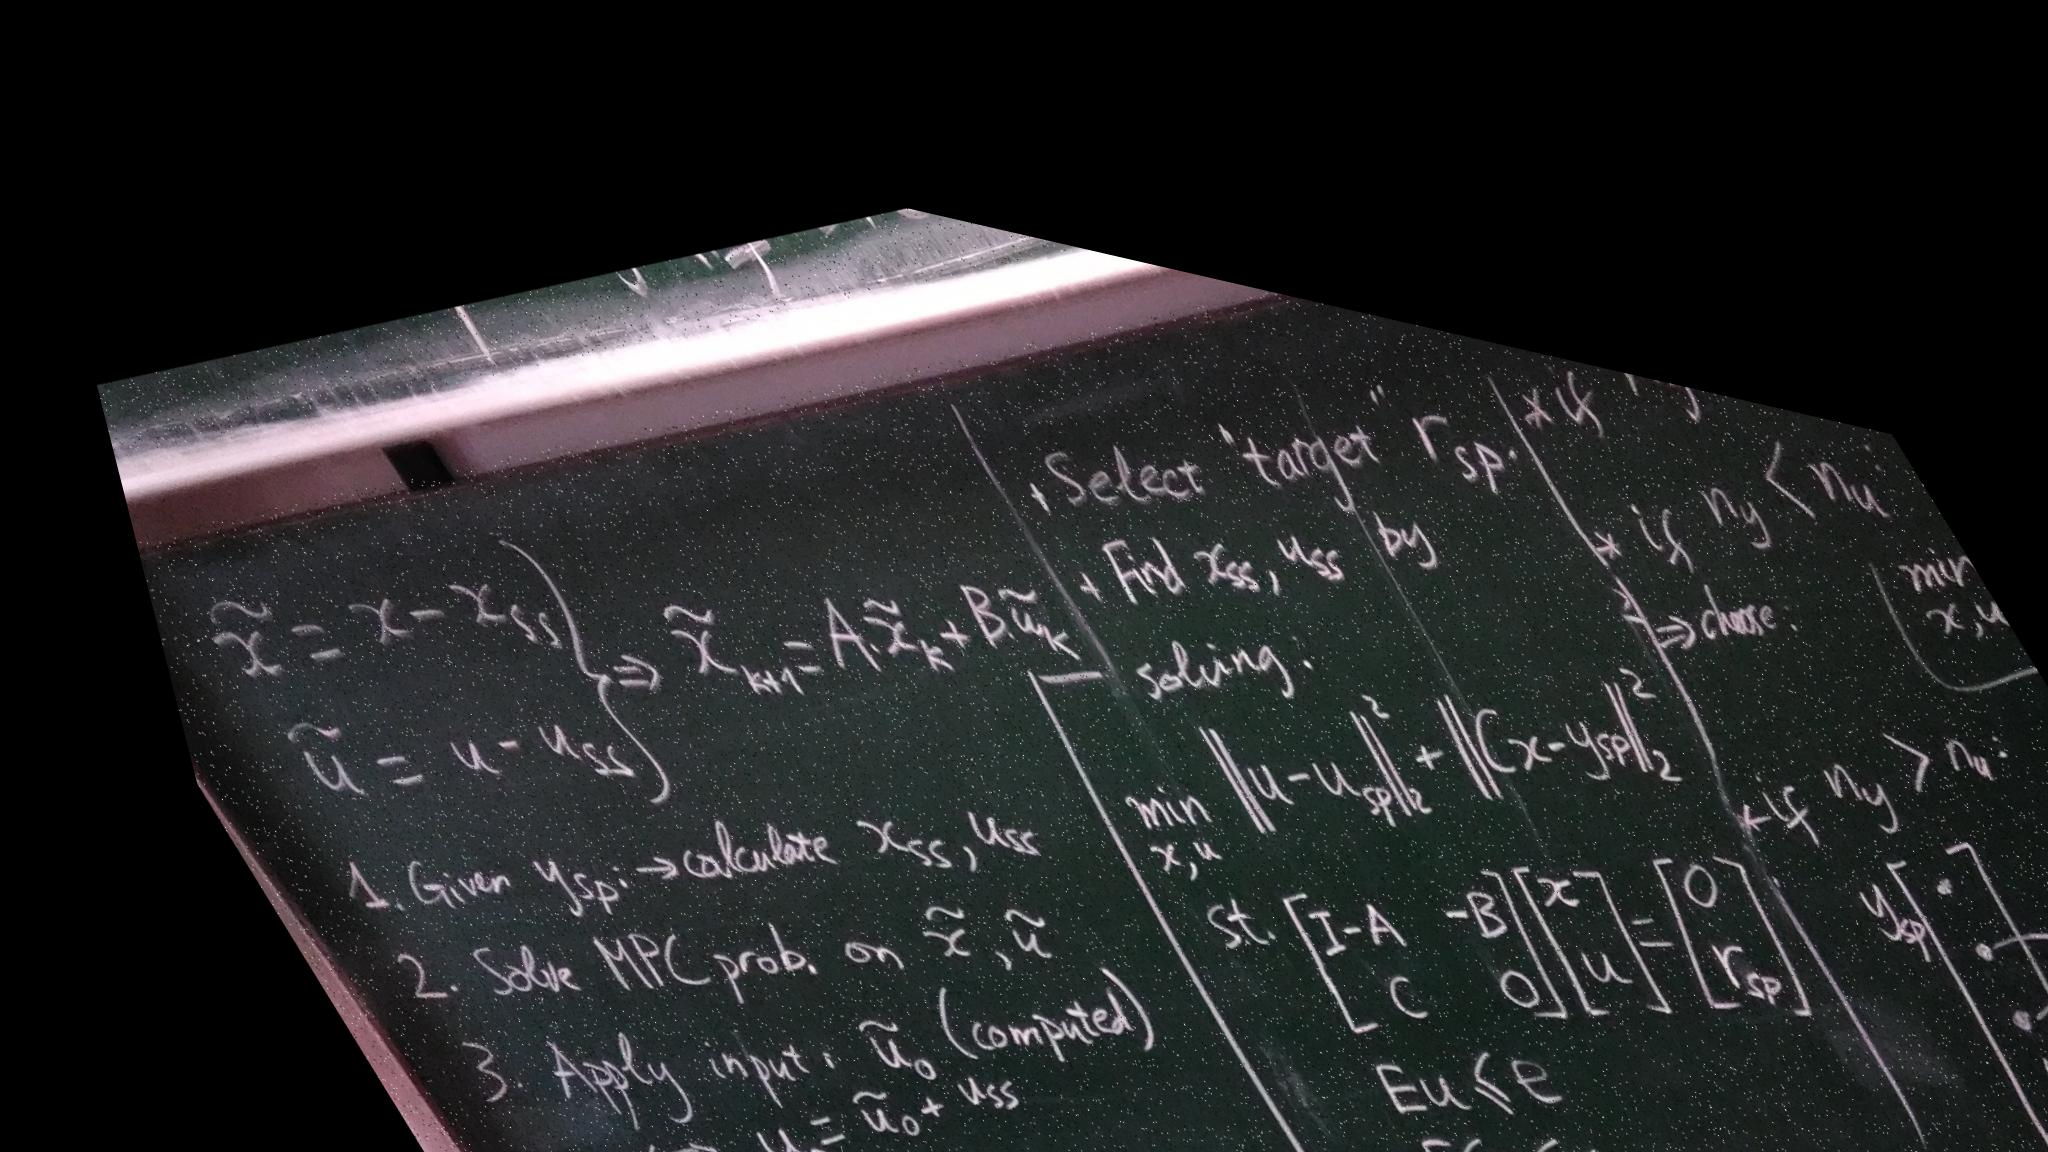 x̃ = x - x_ss } ⇒ x̃_{k+1} = A·x̃_k + B·ũ_k
ũ = u - u_ss
1. Given y_sp: → calculate x_ss, u_ss
2. Solve MPC prob. on x̃, ũ
3. Apply input: ũ_0 (computed)
= ũ_0 + u_ss
+ Select "target" r_sp.
+ Find x_ss, u_ss by
solving:
min_{x,u} ||u - u_sp||_2^2 + ||Cx - y_sp||_2^2
st. [I-A -B; C 0] [x; u] = [0; r_sp]
Eu ≤ e
* if
* if n_y < n_u:
⇒ choose:
min
x,u
* if n_y > n_u:
y_sp